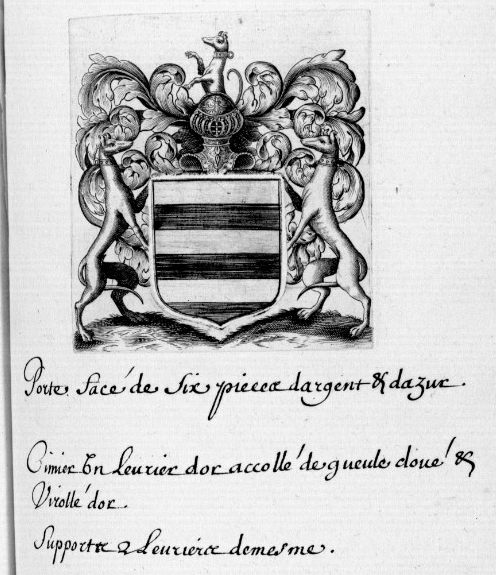 Porte facé de six pieces dargent & dazur.
Cimier Un leurier dor accollé de gueule cloué &
Virollé dor.
Supportz 2 leurierz demesme.